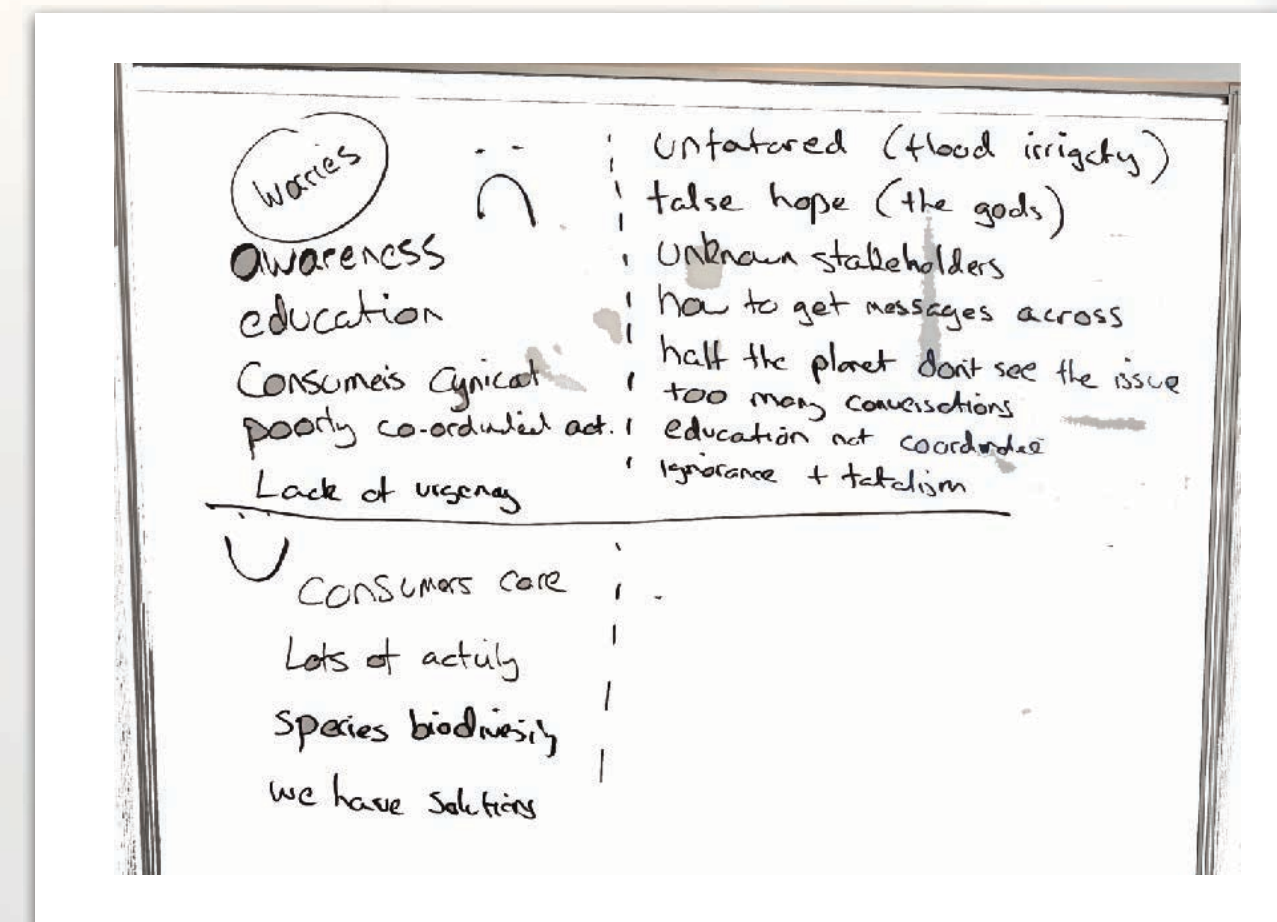 worries
awareness
education
Consumers Cynical
poorly co-ordinated act.
Lack of urgency
(flood irrigaty)
false hope (the gods)
unknown stakeholders
how to get messages across
half the planet dont see the issue
too many conversations
education not coordinated
ignorance + fatalism
Consumers care
Lots of activity
Species biodiversity
we have solutions